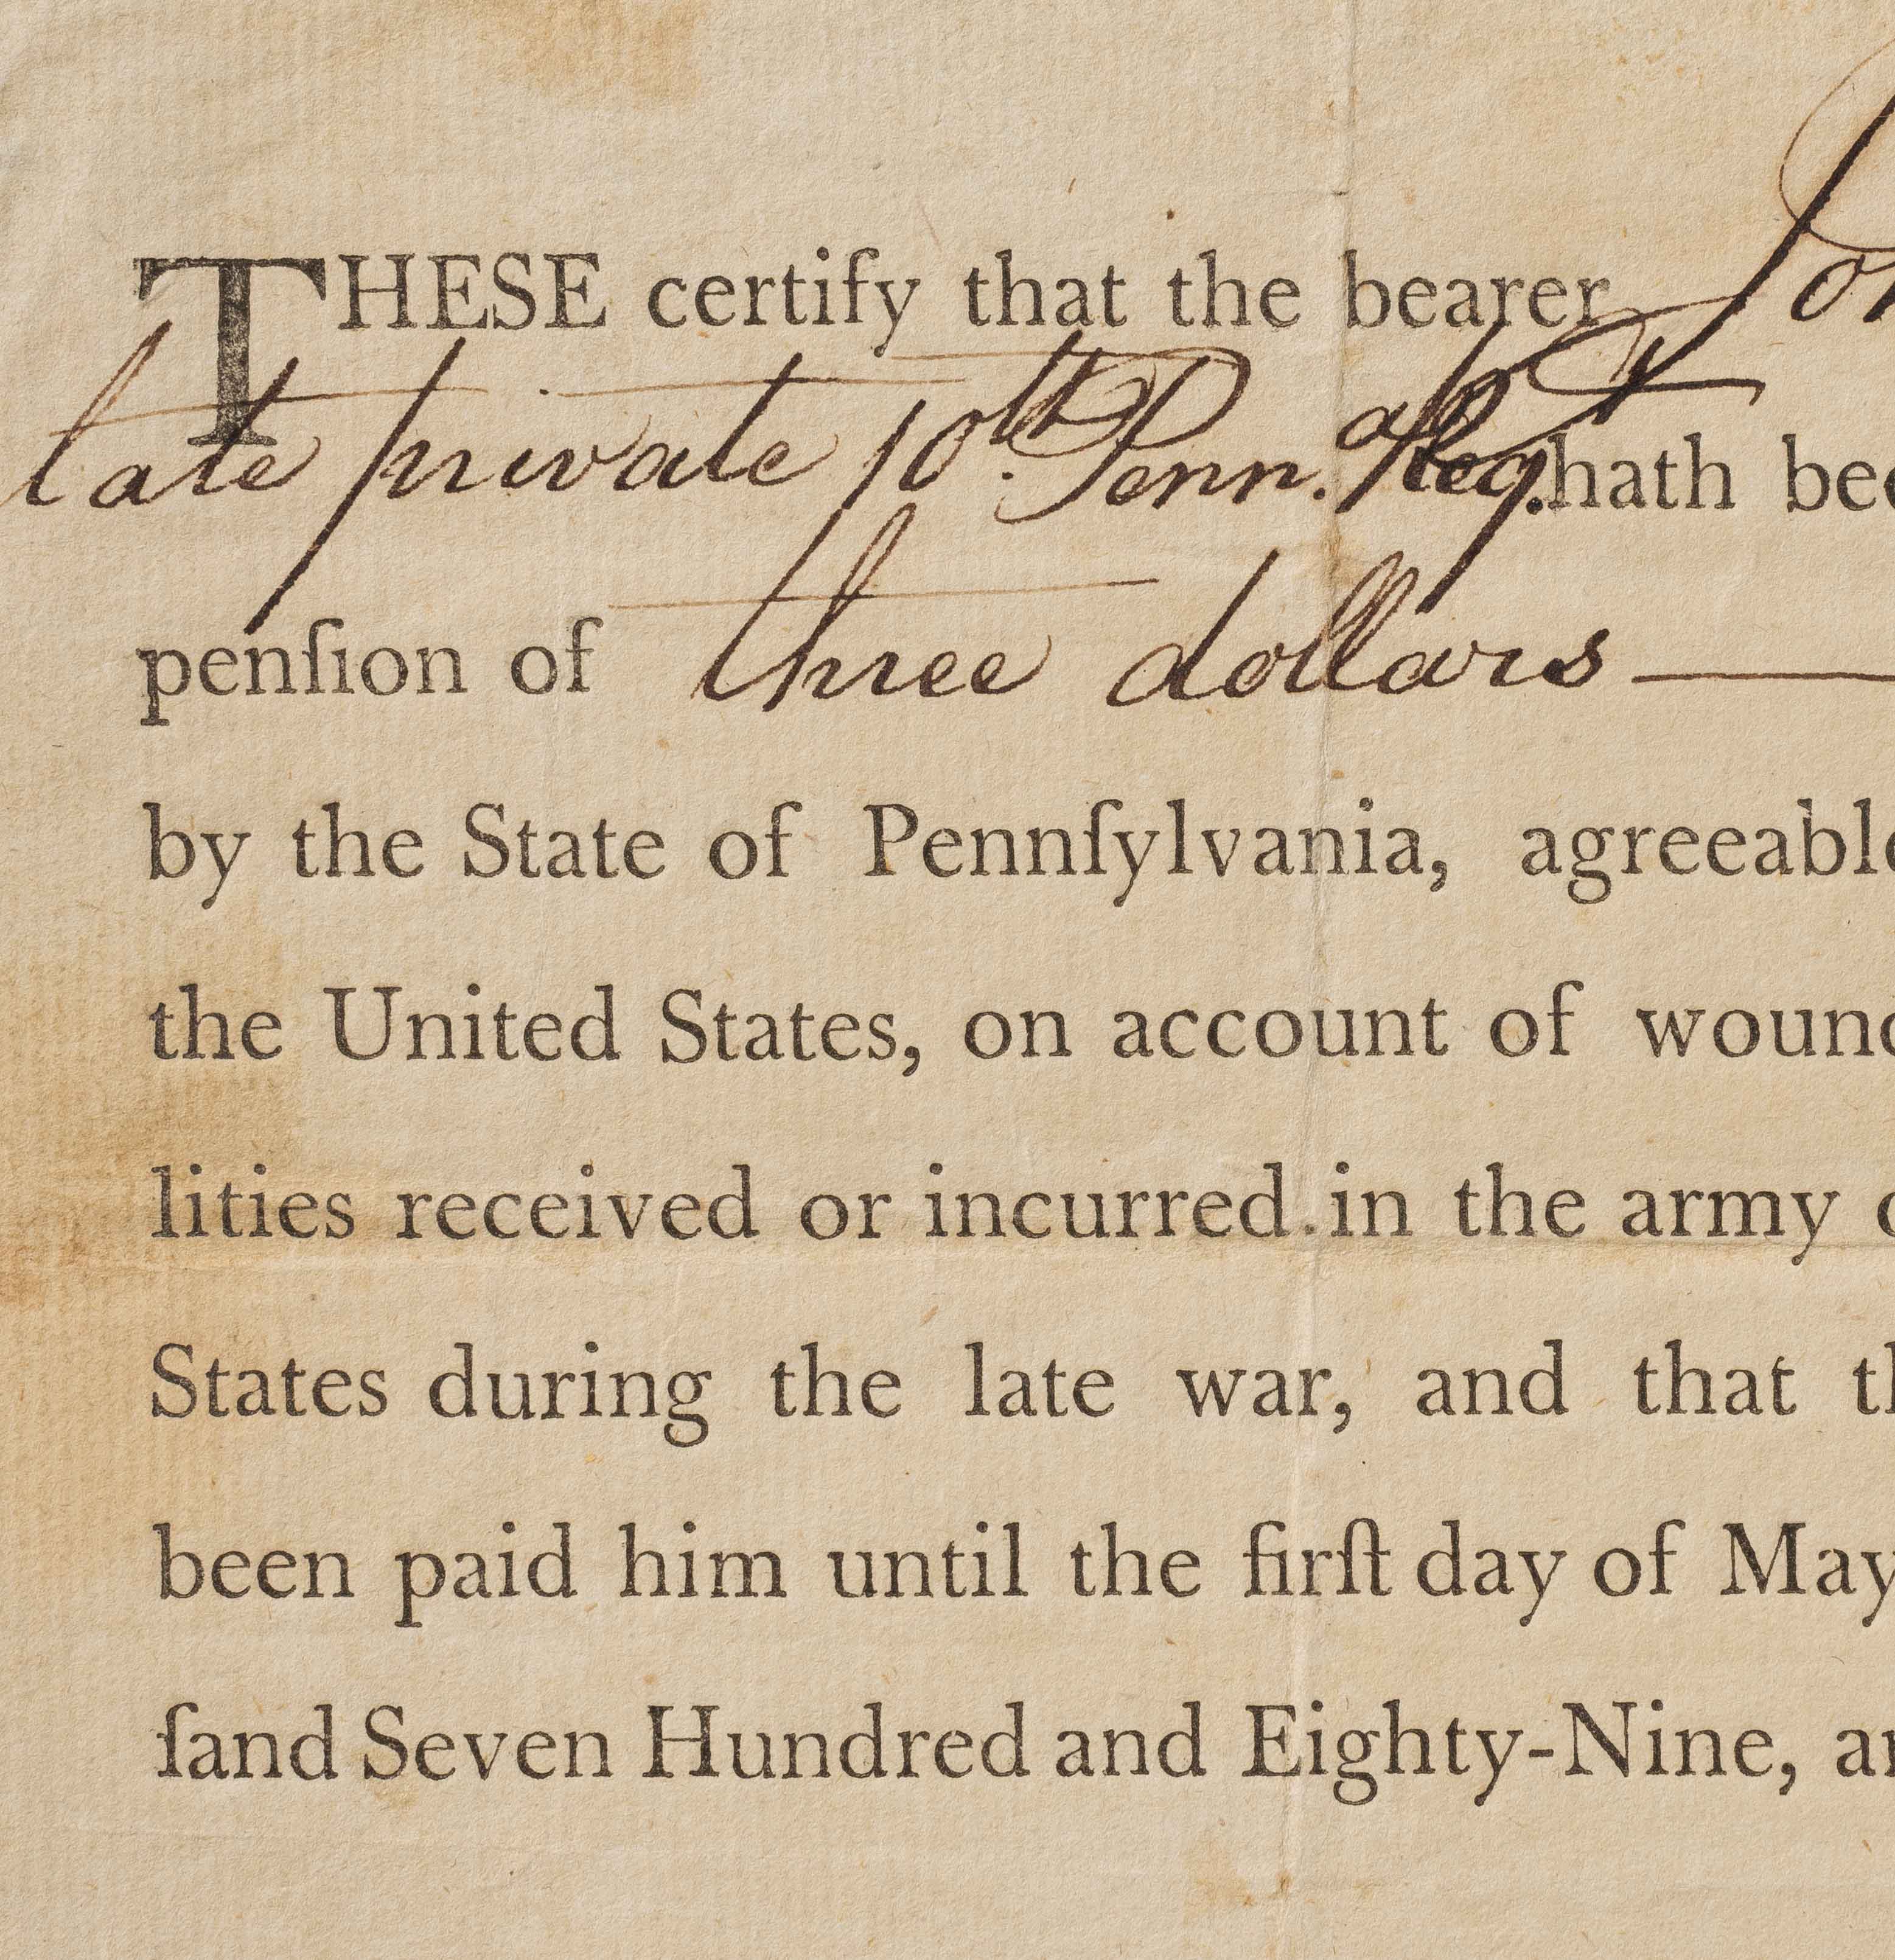 THESE certify that the bearer
late private 10th Penn. Reg. hath
penſion of three dollars
by the State of Pennſylvania,
the United States, on account of
lities received or incurred in the army
States during the late war, and that
been paid him until the firſt day of May
ſand Seven Hundred and Eighty-Nine,